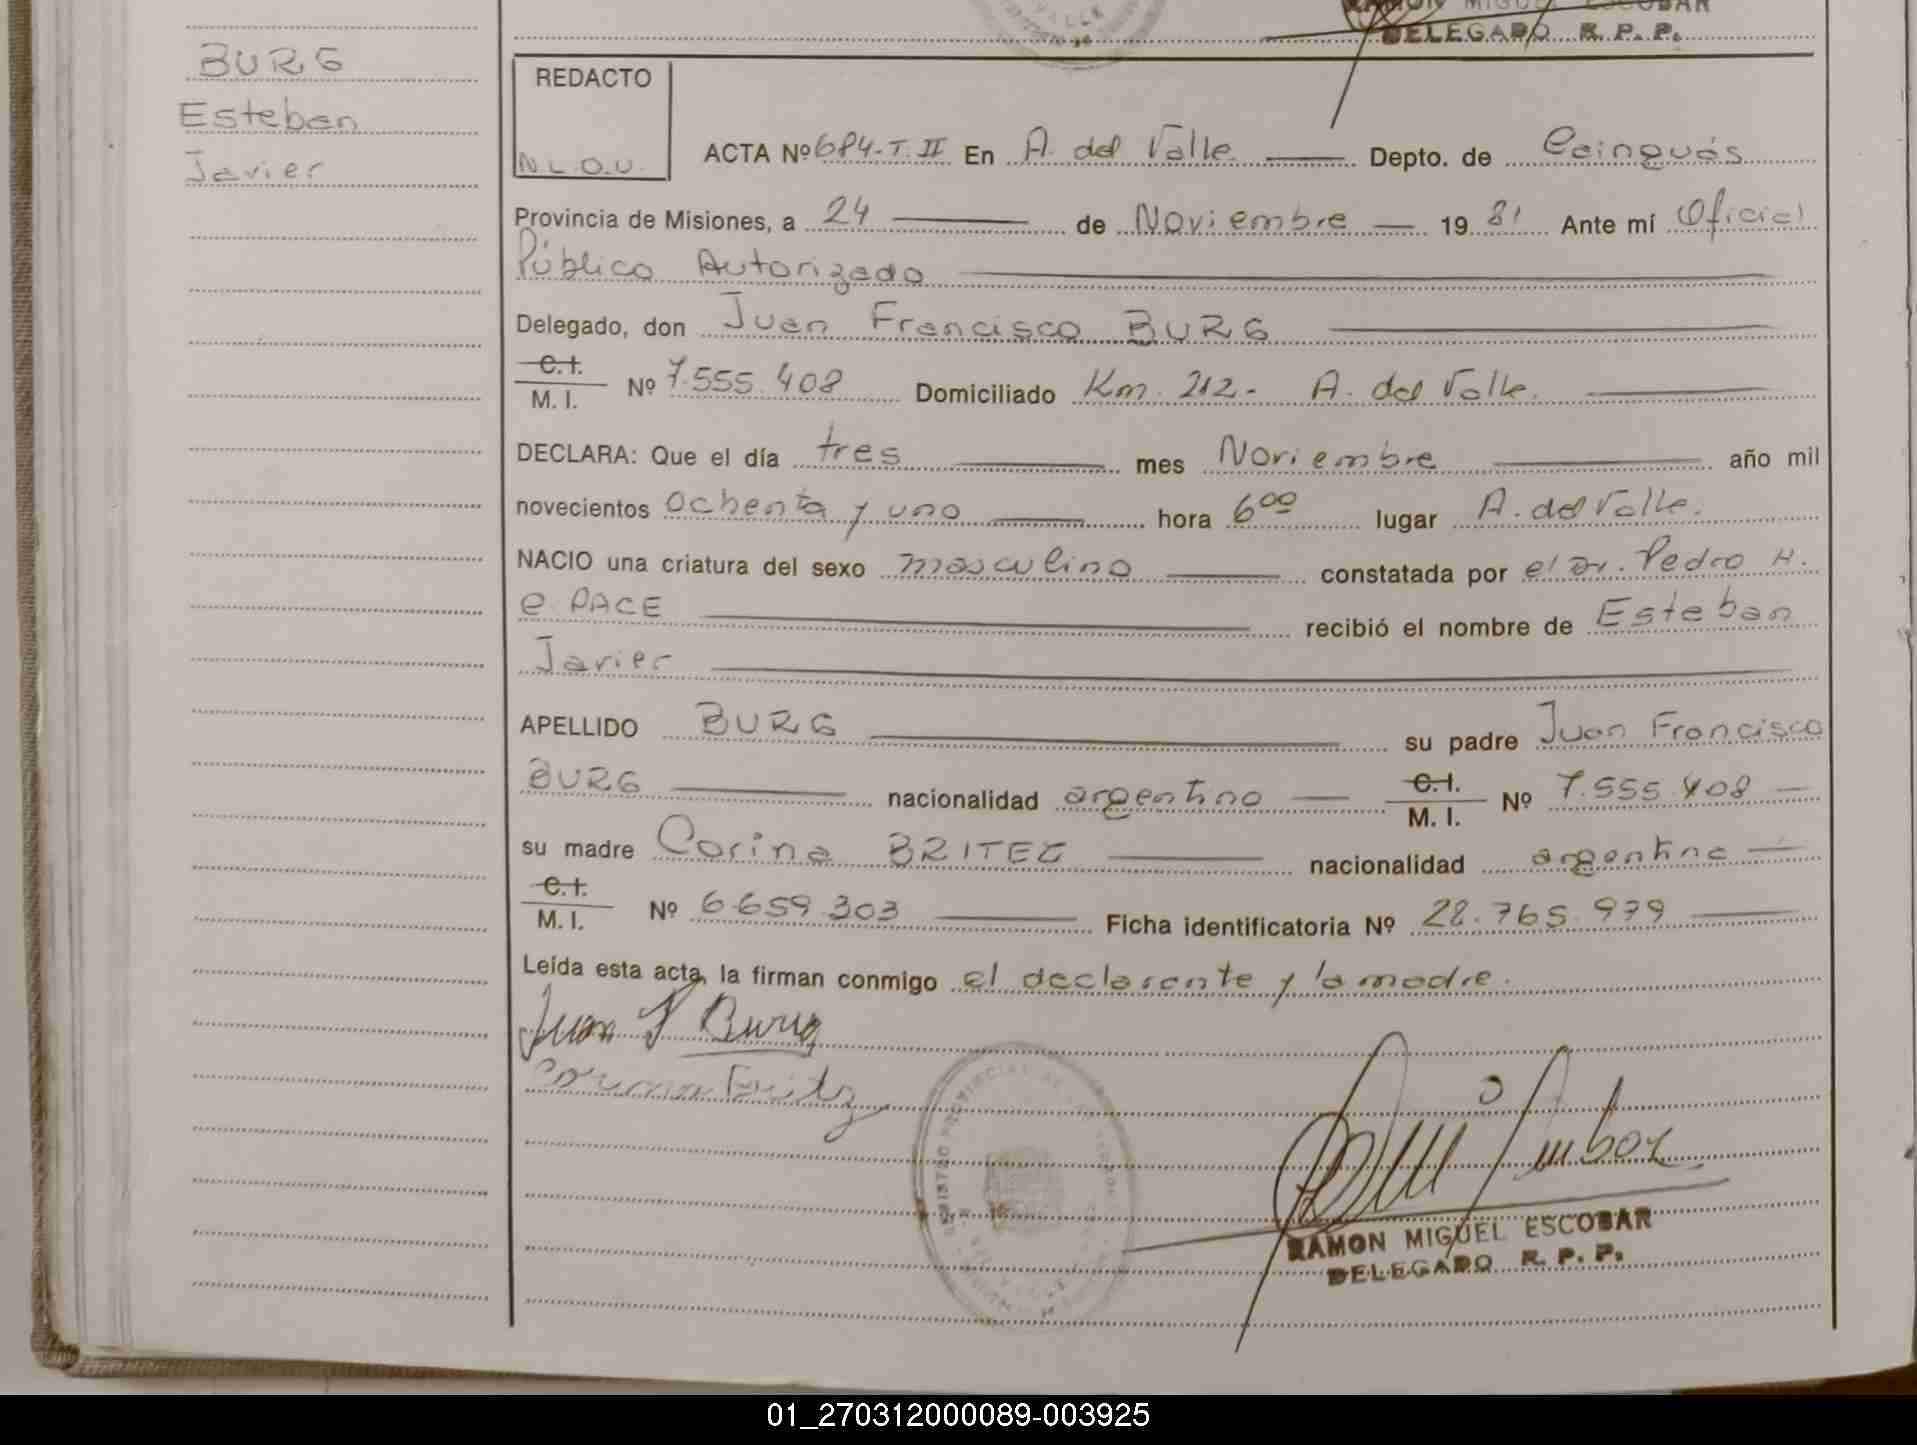 RAMON MIGUEL ESCOBAR
DELEGADO R. P. P.
VALLE
BURG
Esteban
Javier
REDACTO
N.L.O.U.
ACTA Nº 684-T.II En A. del Valle Depto. de Cainguás
Provincia de Misiones, a 24 de Noviembre 1981 Ante mí Oficial
Público Autorizado
Delegado, don Juan Francisco BURG
C.I.
M. I. Nº 7.555.408 Domiciliado Km. 212.- A. del Valle.
DECLARA: Que el día tres mes Noviembre año mil
novecientos ochenta y uno hora 6 00 lugar A. del Valle.
NACIO una criatura del sexo masculino constatada por el Dr. Pedro H.
e PACE recibió el nombre de Esteban
Javier
APELLIDO BURG su padre Juan Francisco
BURG nacionalidad argentino C.I.
M. I. Nº 7.555.408
su madre Corina BRITEZ nacionalidad argentina
C.I.
M. I. Nº 6.659.303 Ficha identificatoria Nº 28.765.979
Leída esta acta, la firman conmigo el declarante y la madre.
Juan F Burg
REGISTRO PROVINCIAL DE
RAMON MIGUEL ESCOBAR
DELEGADO R. P. P.
01_270312000089-003925